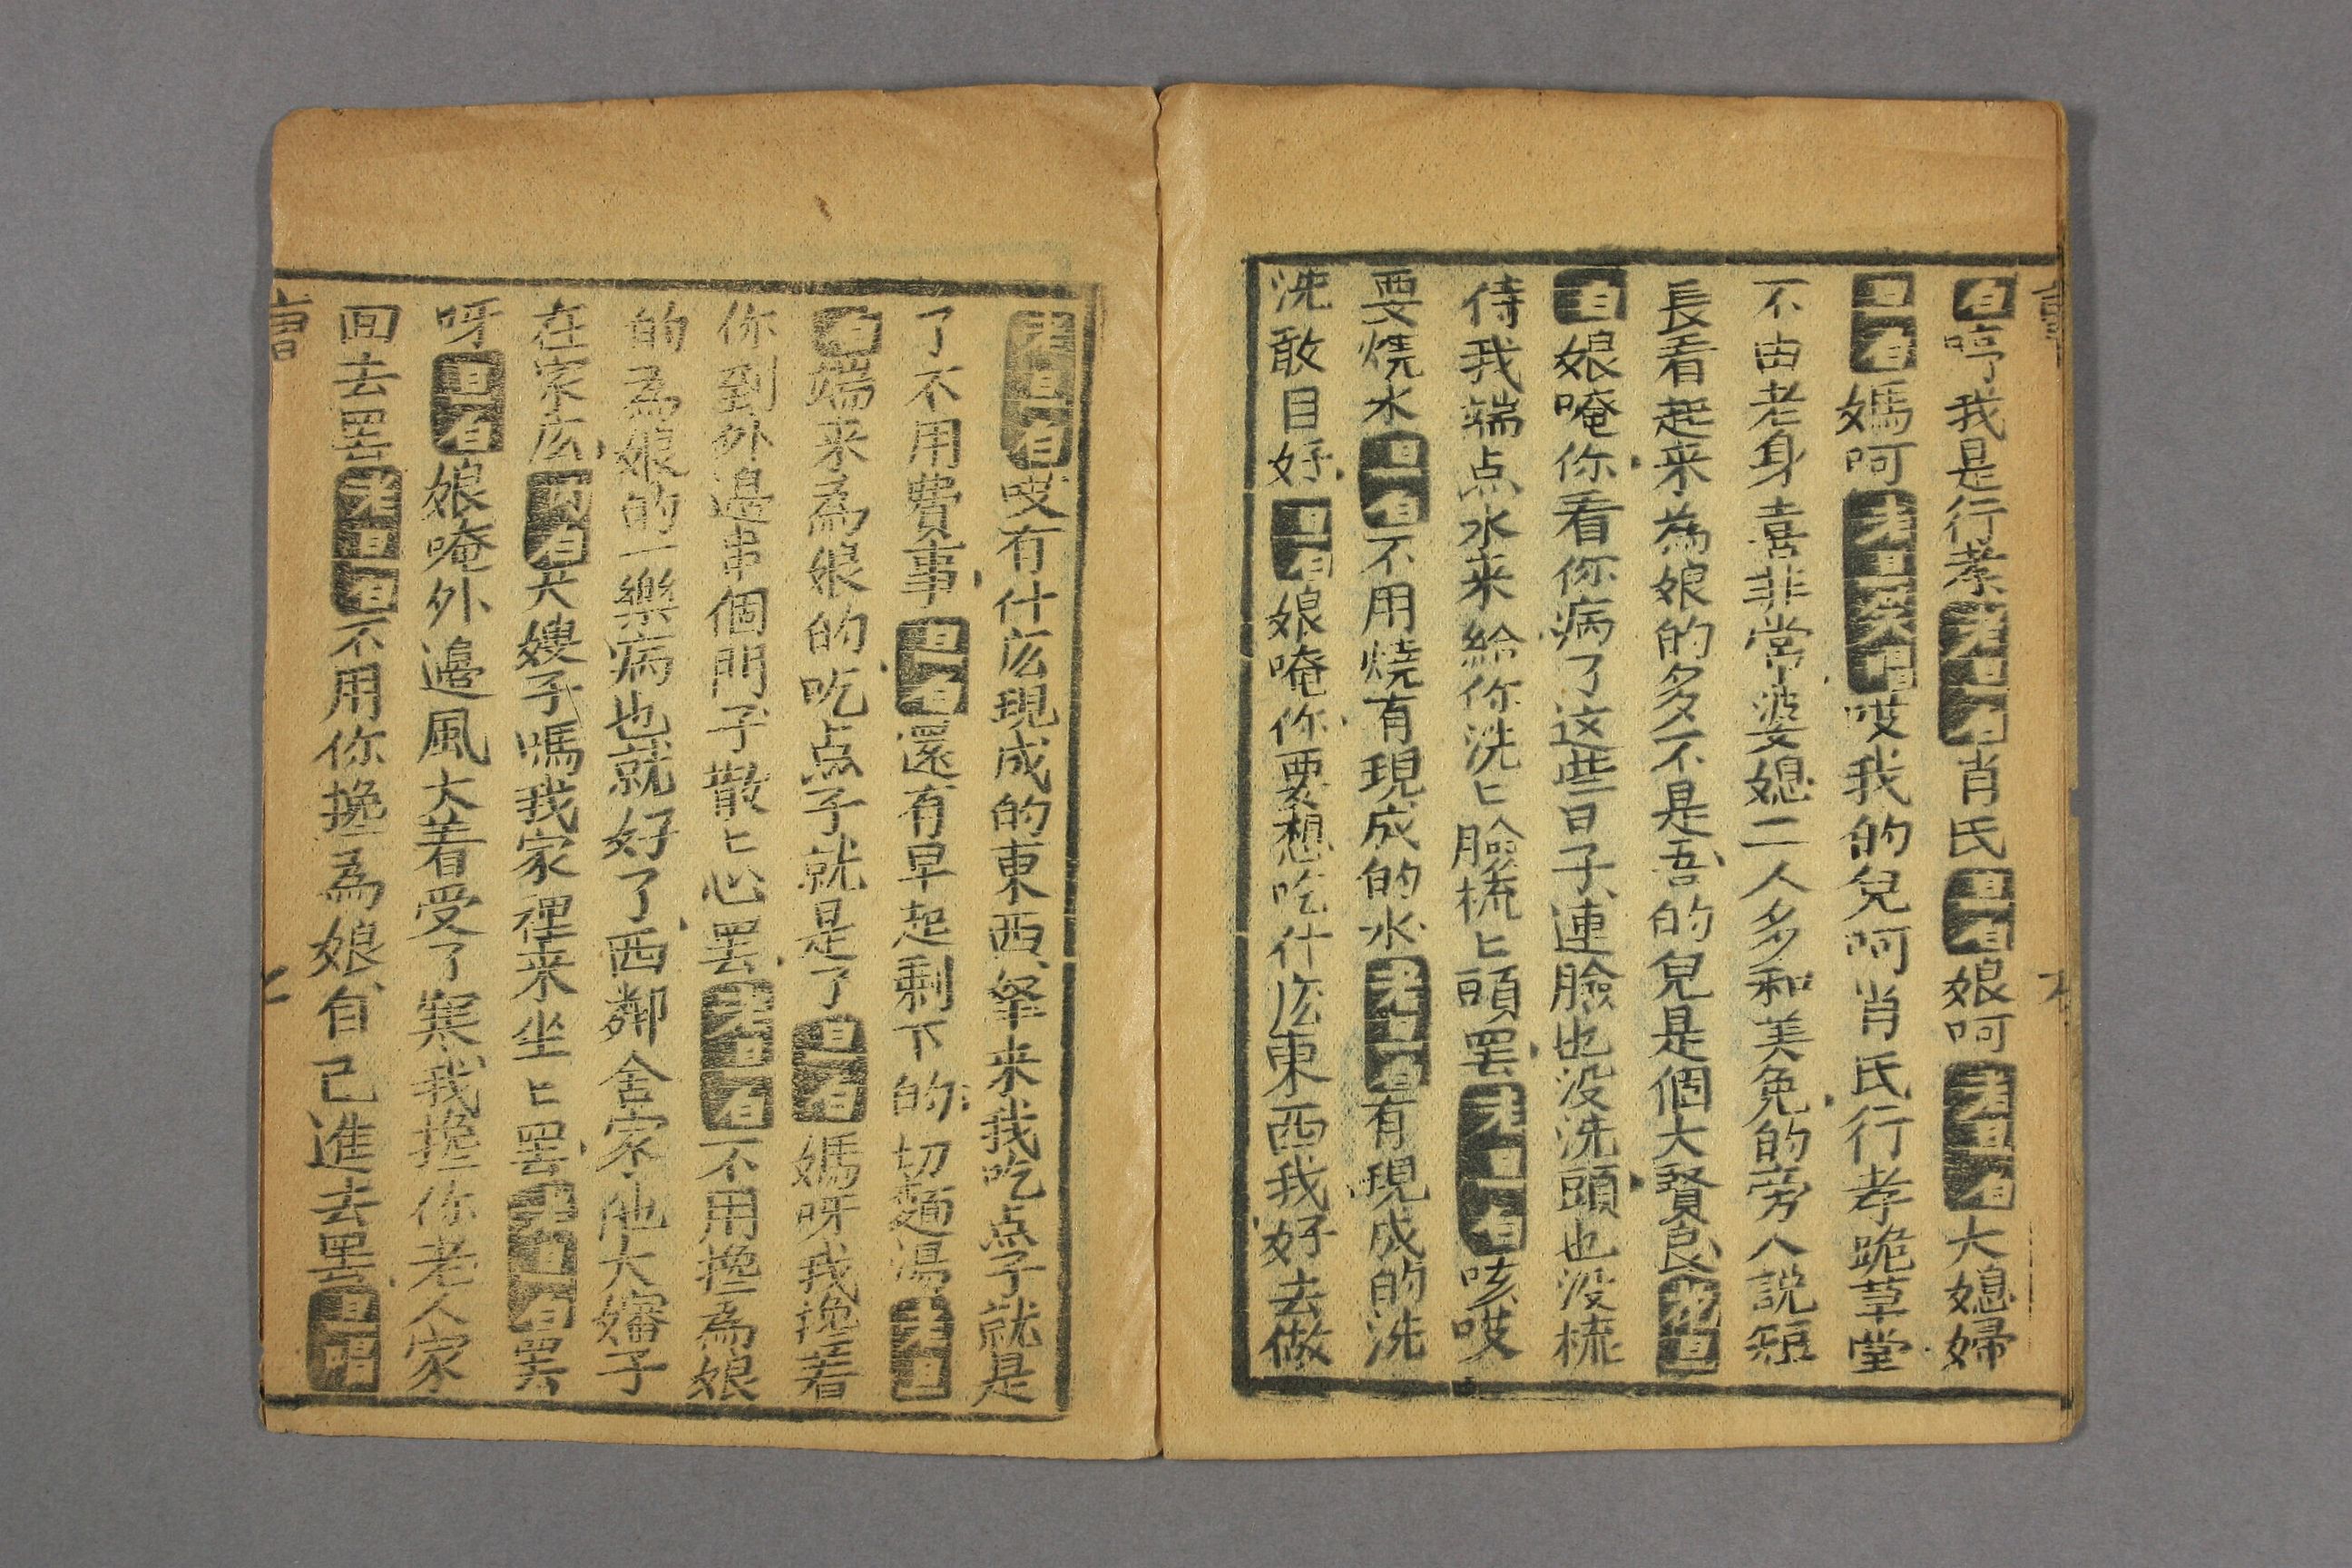 白哼我是行孝老旦白肖氏旦白娘呵老旦白大媳婦
旦白媽呵老旦笑唱哎我的兒呵肖氏行孝跪草堂
不由老身喜非常婆媳二人多和美免的旁人説短
長看起来為娘的多不是吾的兒是個大賢良旦
白娘唵你看你病了这些日子連臉也没洗頭也没梳
待我端点水来給你洗匕臉梳匕頭罢老旦白咳哎
要燒水旦白不用燒有現成的水老旦白有現成的洗
洗敢目好旦白娘唵你要想吃什庅東西我好去做
老旦白哎有什庅現成的東西拏来我吃点子就是
了不用費事旦白還有早起剩下的切麺湯老旦
白端来為娘的吃点子就是了旦白媽呀我攙着
你到外邉串個門子散匕心罢老旦白不用攙為娘
的為娘的一樂病也就好了西鄰舍家他大嬸子
在家庅内白大嫂子嗎我家裡来坐匕罢老旦白罢
呀旦白娘唵外邉風大着受了寒我攙你老人家
回去罢老旦白不用你攙為娘自己進去罢旦唱